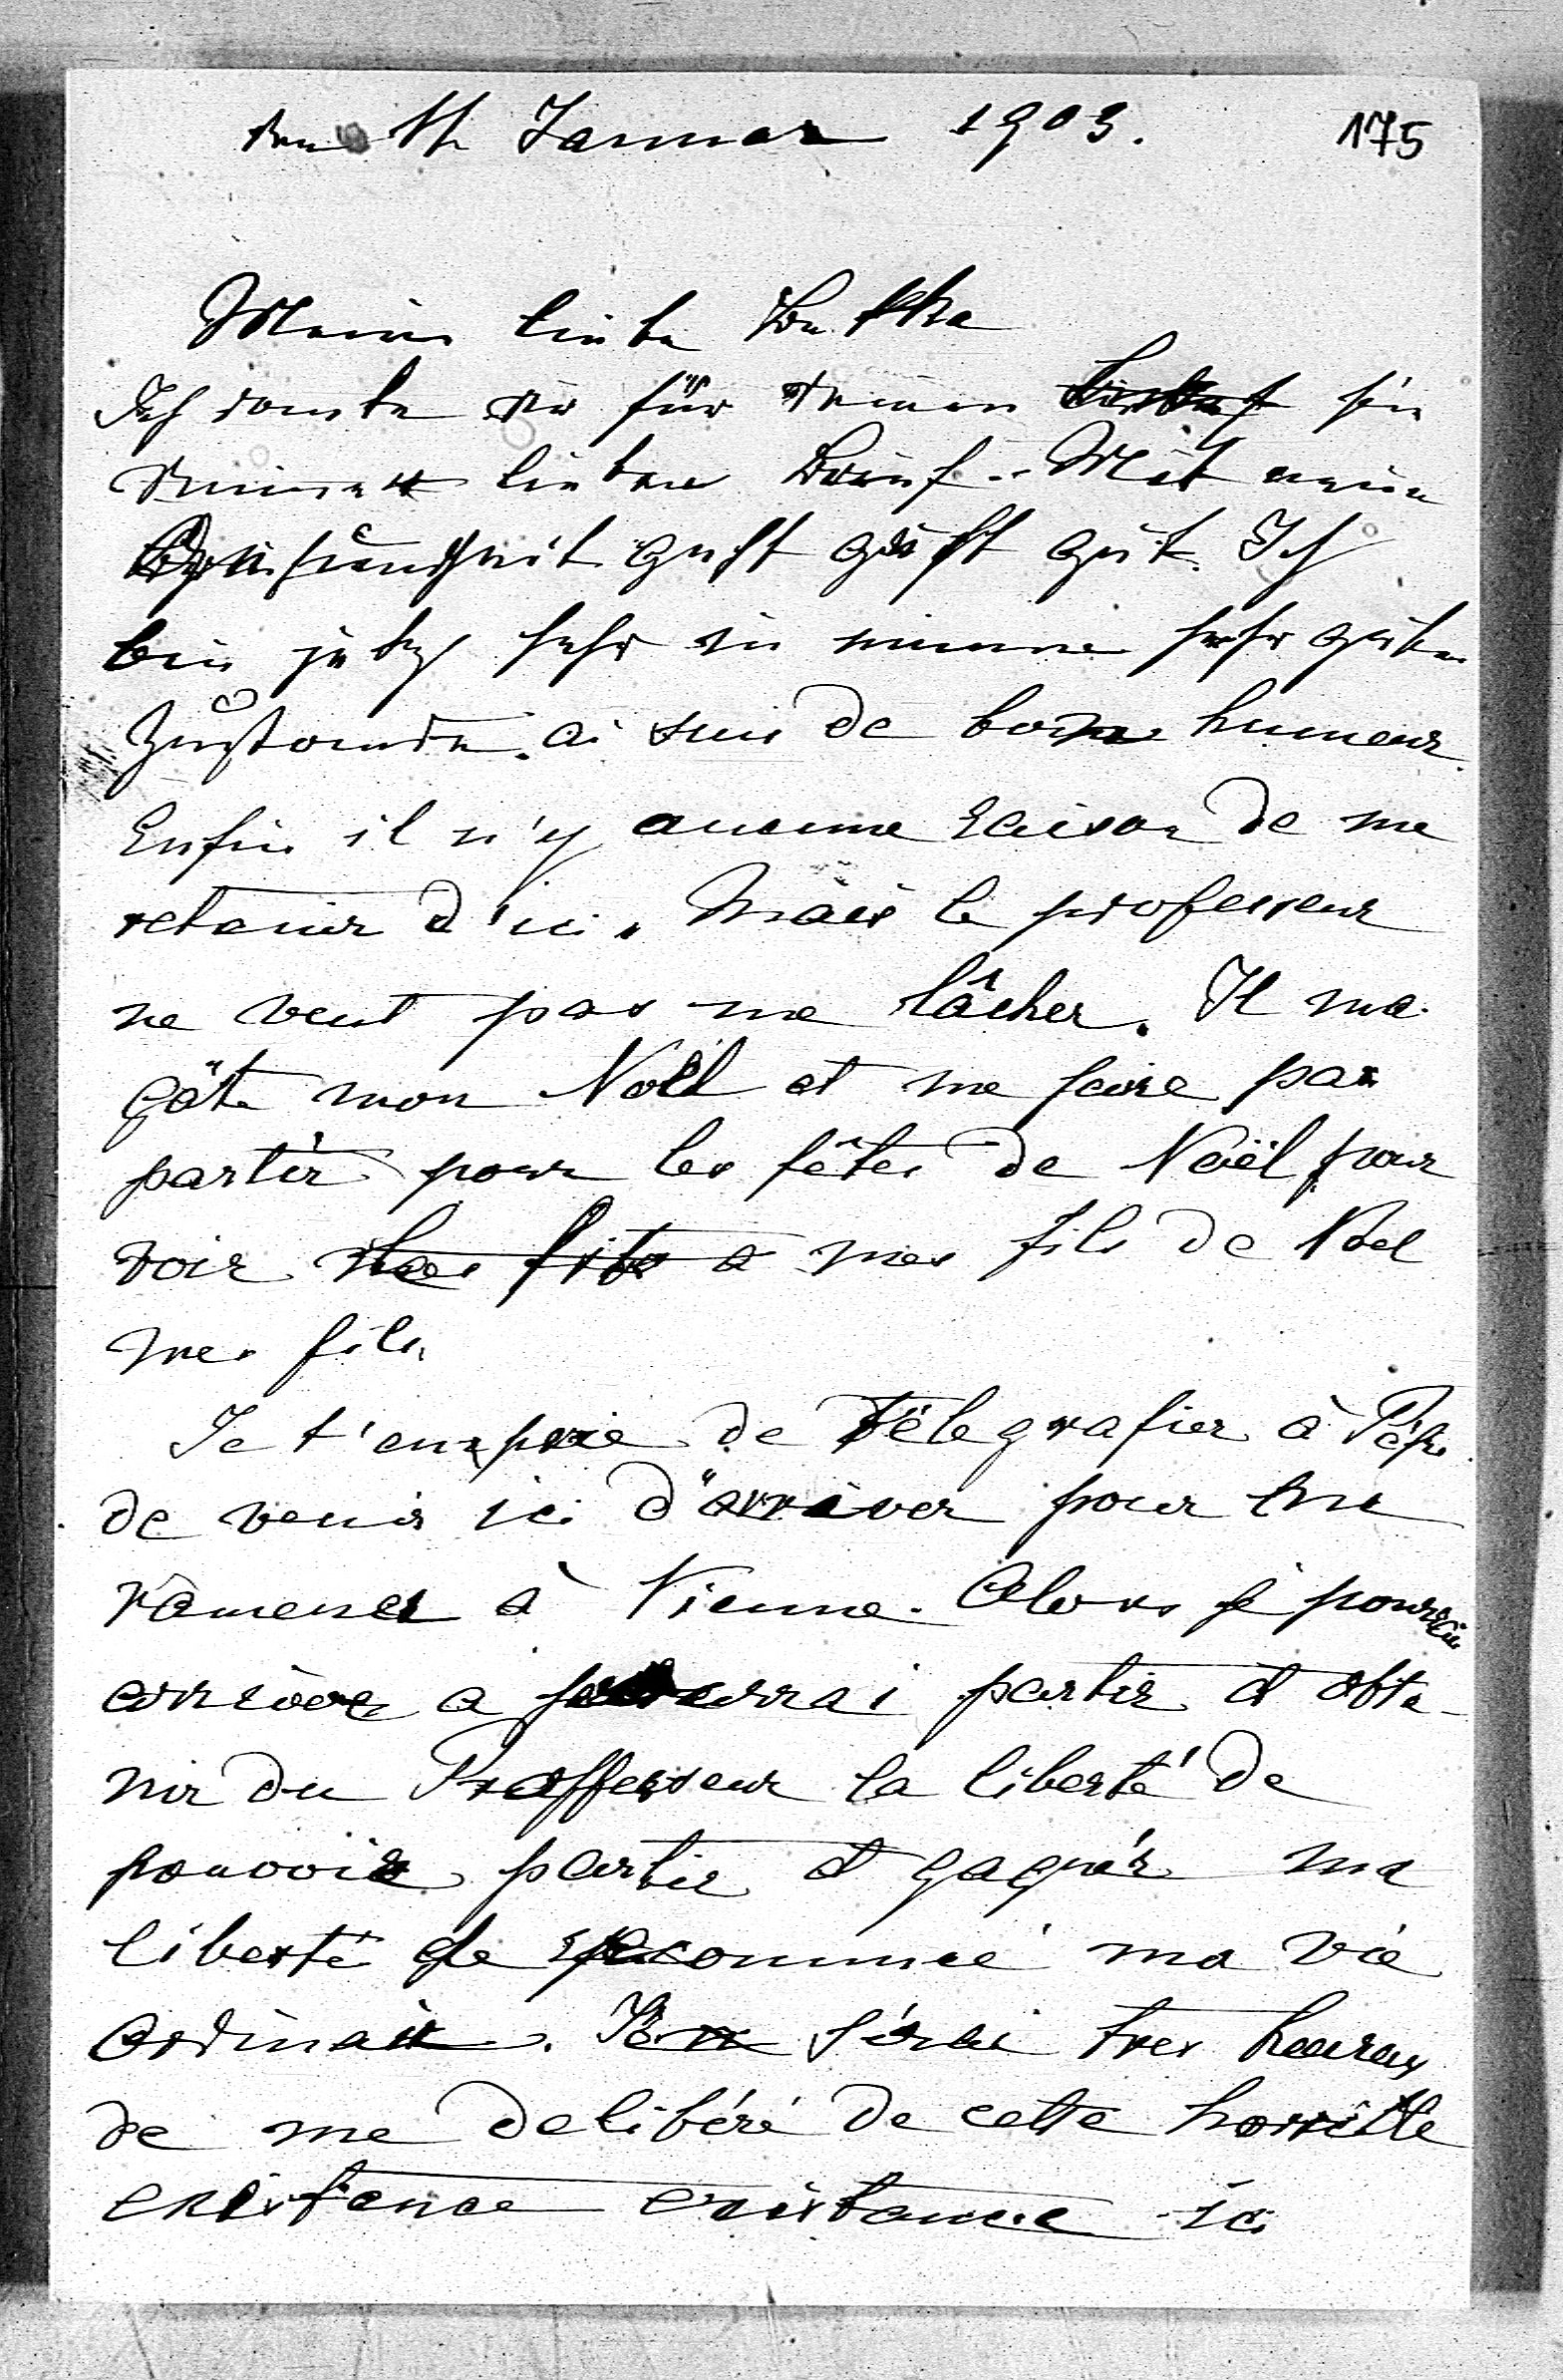 den Januar 1903. 175
Meine liebe
Ich danke dir für deinen für
deinen lieben Brief. Mit meine
Gesundheit geht geht gut. Ich
bin jetzt sehr in meine sehr guten
Zustande. ai suis de bone humeur.
Enfin il n'y aucune raison de me
retenir d'ici. Mais le professeur
ne veut pas me lâcher. Il ma
gâte mon Noël et me faire pas
partir pour les fêtes de Noël pour
voir mes fils de Noel
mes fils.
Je t'en prie de télegrafier à Pépi
de venir ici d'arriver pour me
ramener à Vienne. Alors je pourrai
arriver a partir et obte-
nir du Proffesseur la liberté de
pouvoir partir et gagnér ma
liberté de ma vie
ordinair. Je sérai tres heureux
de me delibéré de cette horrible
existence existance ici